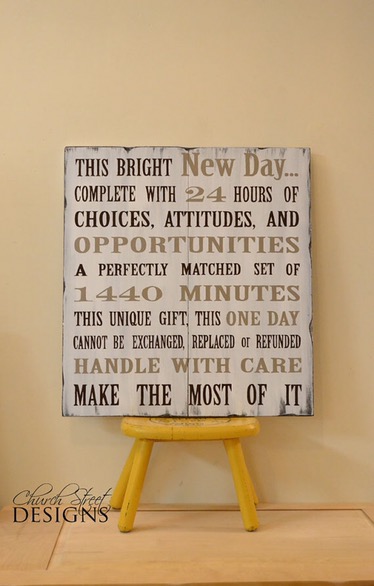 THIS BRIGHT New Day...
COMPLETE WITH 24 HOURS OF
CHOICES, ATTITUDES, AND
OPPORTUNITIES
A PERFECTLY MATCHED SET OF
1440 MINUTES
THIS UNIQUE GIFT, THIS ONE DAY
CANNOT BE EXCHANGED, REPLACED or REFUNDED
HANDLE WITH CARE
MAKE THE MOST OF IT
Church Street
DESIGNS